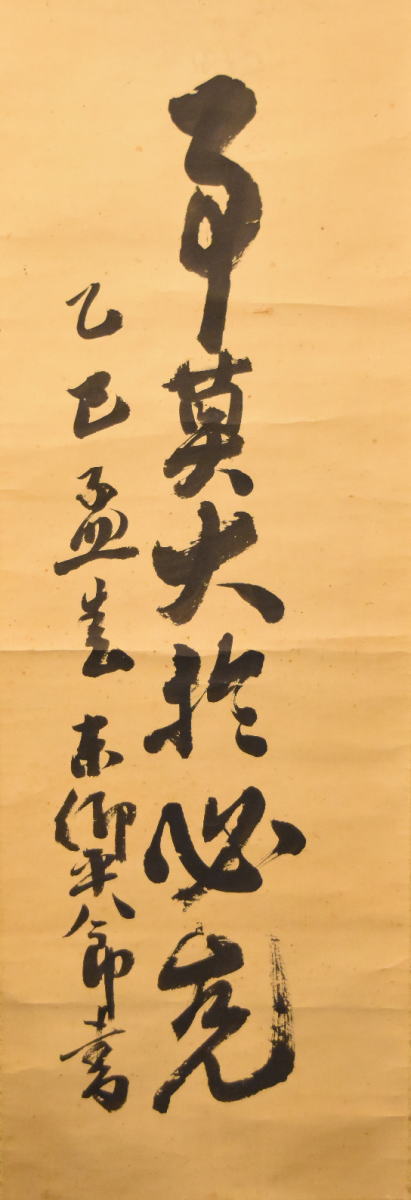 事莫大於必克
乙巳孟春 東郷平八郎書